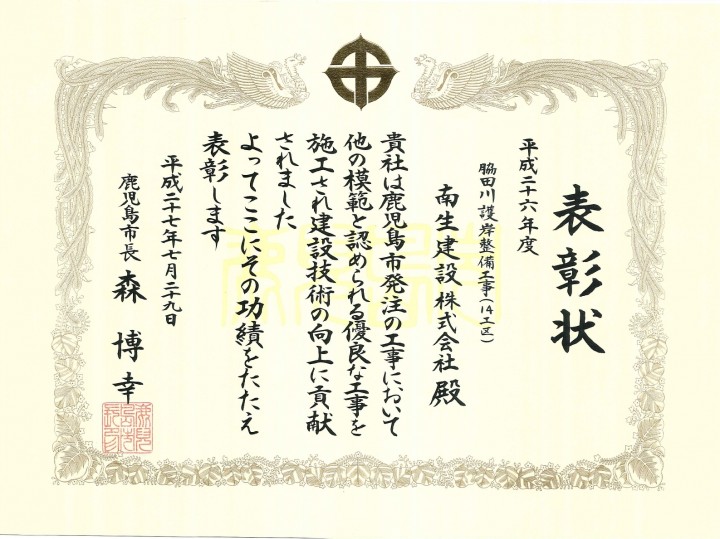 表彰状
平成二十六年度
脇田川護岸整備工事(14工区)
南生建設株式会社 殿
貴社は鹿児島市発注の工事において
他の模範と認められる優良な工事を
施工され建設技術の向上に貢献
されました
よってここにその功績をたたえ
表彰します
平成二十七年七月二十九日
鹿児島市長 森 博幸